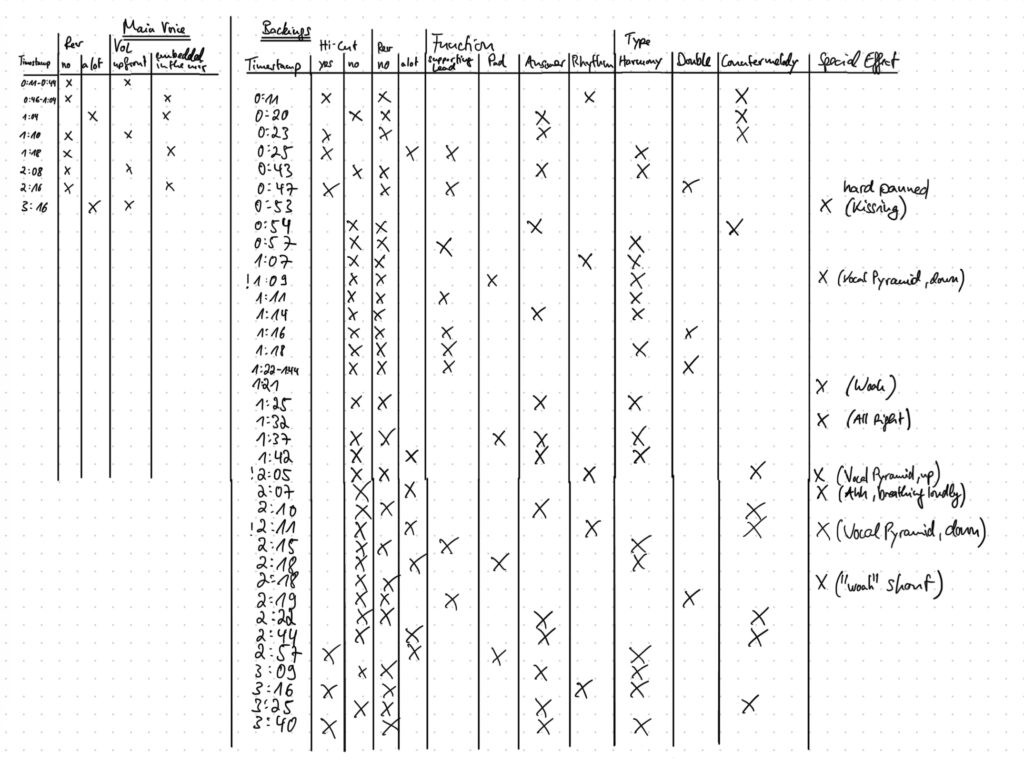 Main Voice
Rev Vol
Timestamp no alot upfront embedded in the mix
0:11-0:49 x x
0:46-1:04 x x
1:04 x x
1:10 x x
1:18 x x
2:08 x x
2:16 x x
3:16 x x
Backings
Hi-Cut Rev Function Type
Timestamp yes no no alot supporting Lead Pad Answer Rhythm Harmony Double Countermelody Special Effect
0:11 x x x x
0:20 x x x x
0:23 x x x x
0:25 x x x x
0:43 x x x x
0:47 x x x x
hard panned
0:53 x (Kissing)
0:54 x x x x
0:57 x x x x
1:07 x x x x
!1:09 x x x x x (Vocal Pyramid, down)
1:11 x x x x
1:14 x x x x
1:16 x x x x
1:18 x x x x
1:22-1:44 x x x x
1:21 x (Woah)
1:25 x x x x
1:32 x (All Right)
1:37 x x x x x
1:42 x x x x
!2:05 x x x x x (Vocal Pyramid, up)
2:07 x x x (Ahh, breathing loudly)
2:10 x x x x
!2:11 x x x x x (Vocal Pyramid, down)
2:15 x x x x
2:18 x x x x
2:18 x x x ("woah" shout)
2:19 x x x x
2:22 x x x x
2:44 x x x x
2:57 x x x x
3:09 x x x x
3:16 x x x x
3:25 x x x x
3:40 x x x x